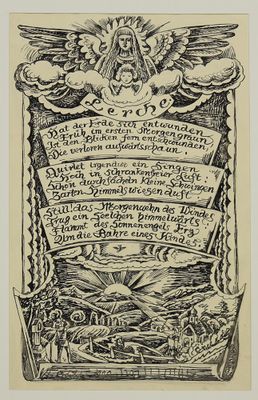 Lerche
Hat der Erde sich entwunden
Früh im ersten Morgengraun
Ist den Blicken fern entschwunden,
Die verloren aufwärtsschaun.
Quirlet irgendwo ein Singen
Hoch in schrankenfreier Luft;
Schon durchfächeln kleine Schwingen
Zarten Himmelswiesenduft.
Still! das Morgenwehn des Windes
Trug ein Seelchen himmelwärts
Flammt des Sonnenengels Erz
Um die Bahre eines Kindes.